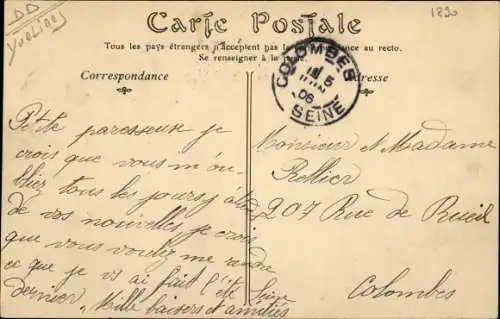 DD
Yvelines
1830
Carte Postale
Tous les pays étrangers n'acceptent pas la correspondance au recto.
Se renseigner à la Poste.
Correspondance
Adresse
COLOMBES
5
JUIN
06
SEINE
Petite paresseuse je
crois que vous m'ou-
bliez tous les jours j'attends
de vos nouvelles, je crois
que vous voulez me rendre
ce que je vs ai fait l'été
dernier
Mille baisers et amitiés
Monsieur et Madame
Rellier
207 Rue de Rueil
Colombes
Seine